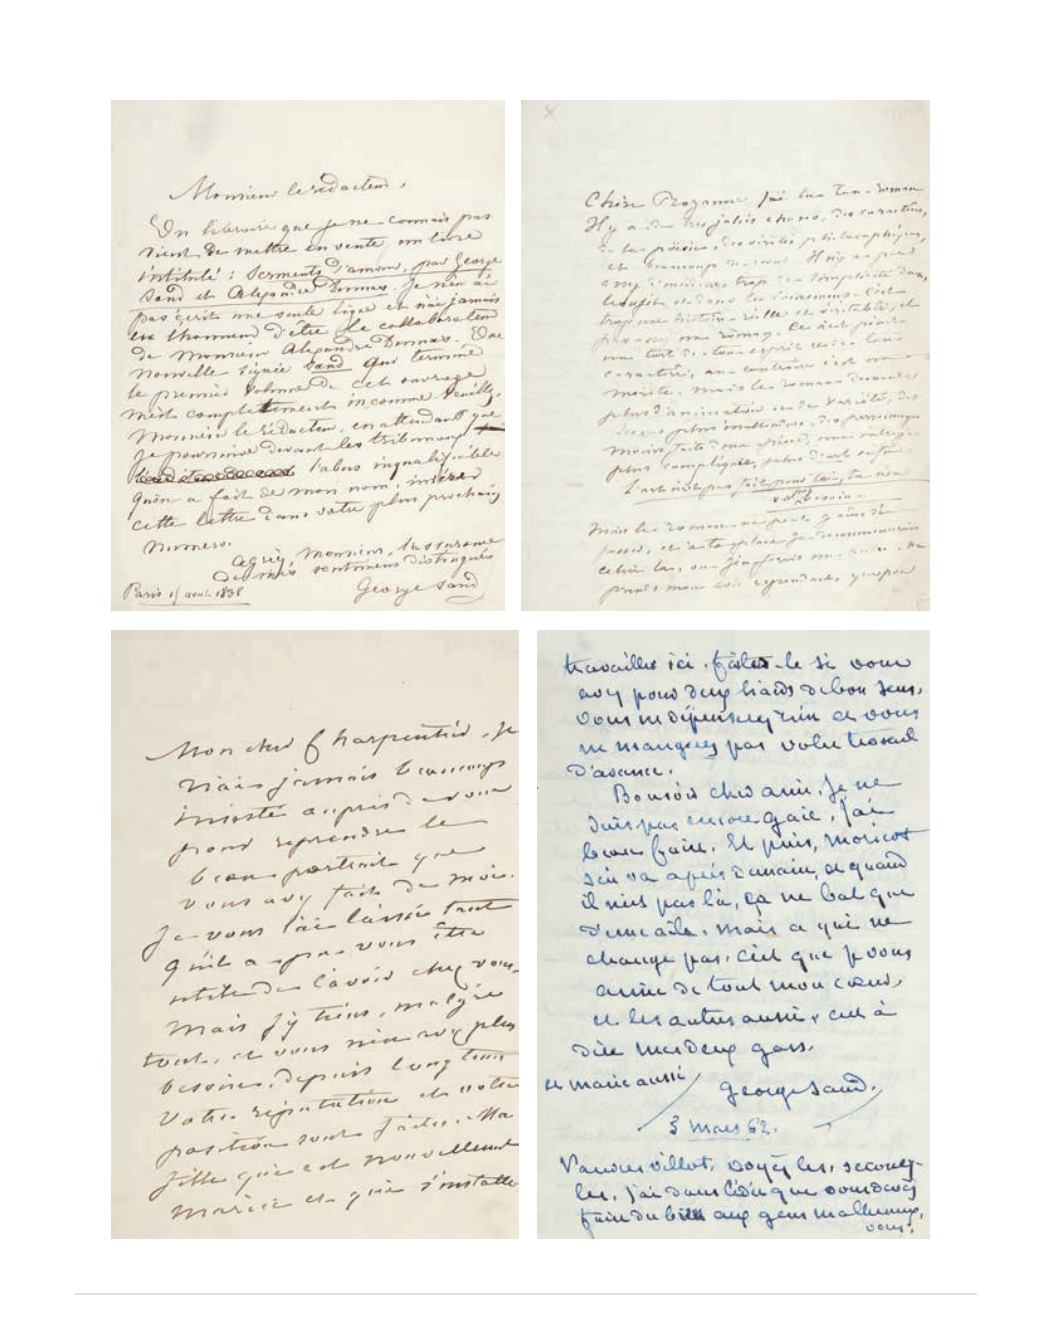 Monsieur le rédacteur,
Un libraire que je ne connais pas
vient de mettre en vente, un livre
intitulé : Serments d'amour, par George
Sand et Alexandre Dumas. Je n'en ai
pas écrit une seule ligne et n'ai jamais
eu l'honneur d'être le collaborateur
de Monsieur Alexandre Dumas. Une
nouvelle signée Sand qui termine
le premier volume de cet ouvrage
m'est complettement inconnue. Veuillez,
Monsieur le rédacteur, en attendant que
je poursuive devant les tribunaux
l'abus inqualifiable
qu'on a fait de mon nom, insérer
cette lettre dans votre plus prochain
numéro.
Agréez, Monsieur, l'assurance
de mes sentimens distingués
George Sand
Paris 15 avril 1838
Chère Rozanne, j'ai lu ton roman
Il y a de très jolies choses, des caractères,
de la poésie, des vérités philosophiques,
et beaucoup de Il n'y a pas
trop de simplicité dans
le sujet et dans les C'est
trop une histoire réelle et véritable, et
pas assez un roman. Ce n'est point
un tort de ton esprit ni de ton
caractère, au contraire c'est un
mérite. Mais le roman demande
plus d'animation et de variété, des
plus inattendues, des personnages
moins faits d'une pièce, une intrigue
plus compliquée, plus d'art enfin.
L'art n'est pas fait pour toi, tu n'en
as pas besoin.
Mais le roman ne peut guère s'en
passer, et à ta place je recommencerais
celui-là, ou j'en ferais un autre. Ne
prends mon avis cependant, que pour
Mon cher Charpentier, je
n'ai jamais beaucoup
insisté auprès de vous
pour reprendre le
beau portrait que
vous avez fait de moi.
Je vous l'ai laissé tant
qu'il a pu vous être
utile de l'avoir chez vous.
Mais j'y tiens, malgré
tout, et vous n'en avez plus
besoin, depuis longtems
votre réputation et votre
position sont faites. Ma
fille qui est nouvellement
mariée et qui s'installe
travailler ici. faites-le si vous
avez pour deux liards de bon sens,
vous ne dépenserez rien et vous
ne mangerez pas votre travail
d'avance.
Bonsoir cher ami. Je ne
suis pas encore gaie, j'ai
beau faire. Et puis, Moricot
s'en va après demain, et quand
il n'est pas là, ça ne bat que
d'une aile. Mais ce qui ne
change pas, c'est que je vous
aime de tout mon cœur,
et les autres aussi, c'est à
dire mes deux gars.
et Marie aussi
George Sand.
3 mars 62.
Villot, voyez les, secouez-
les, j'ai dans l'idée que vous devez
faire du bien aux gens malheureux,
vous.